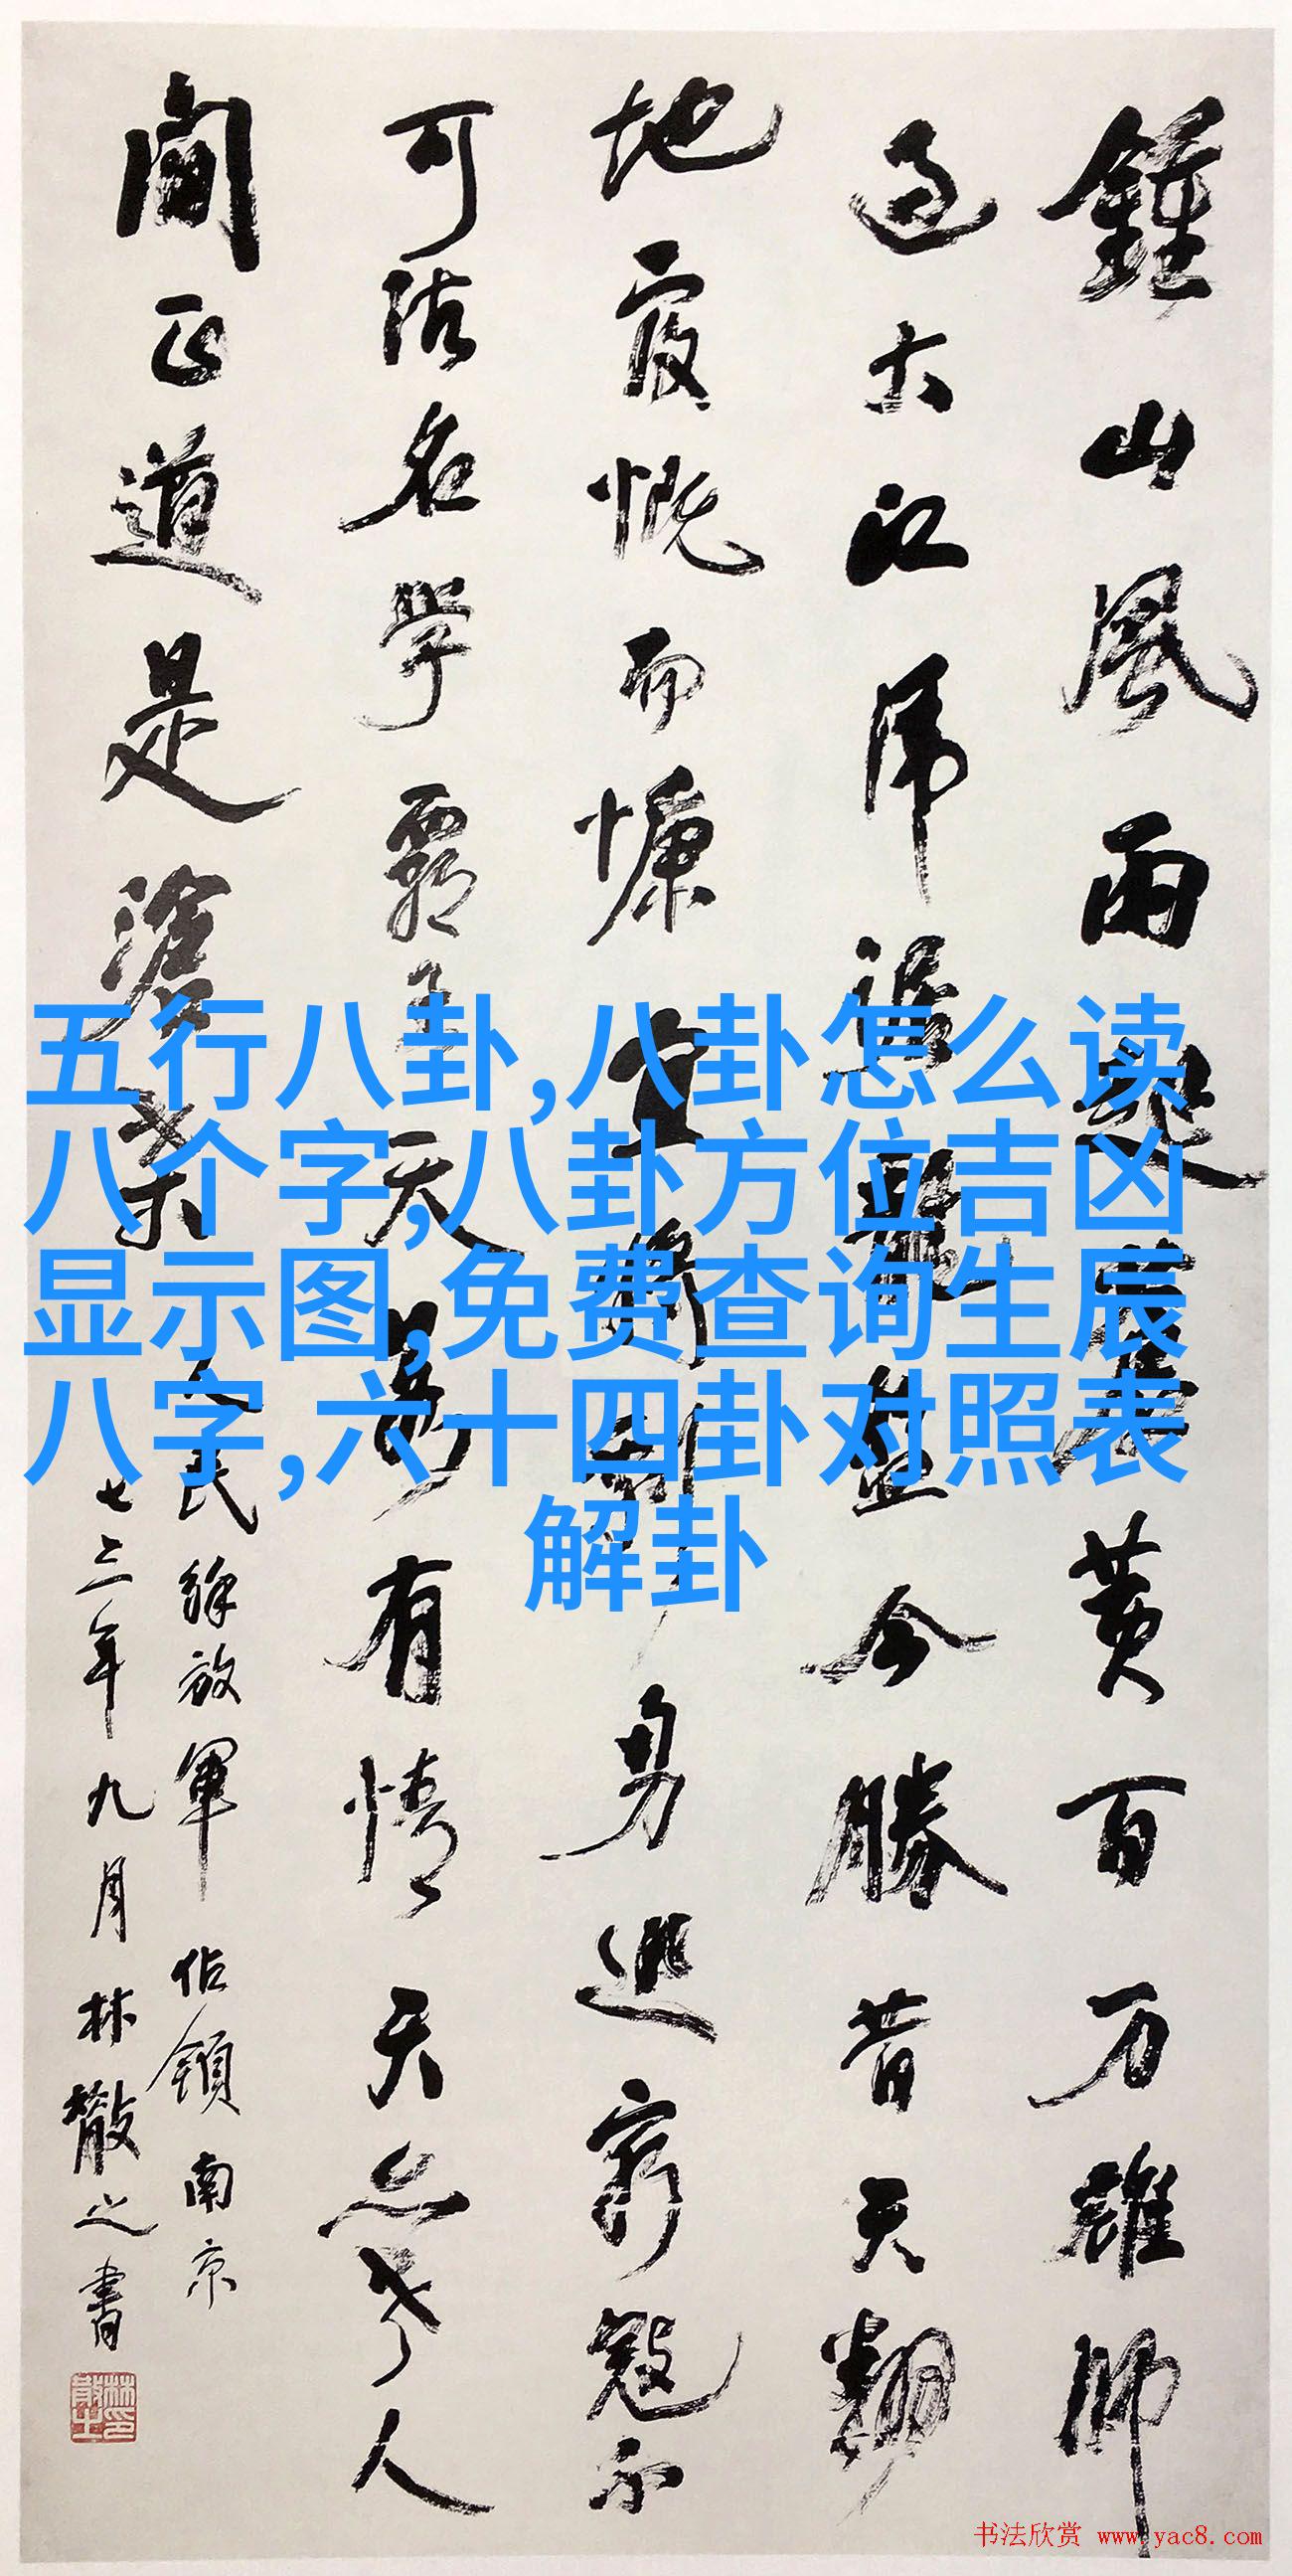 鍾山風雨起蒼黄百万雄師
过大江虎踞龍盤今勝昔天翻
地覆慨而慷宜將剩勇追窮寇不
可沽名學霸王天若有情天亦老人
间正道是滄桑
人民解放軍佔領南京
七三年九月林散之書
五行八卦,八卦怎么读
八个字,八卦方位吉凶
显示图,免费查询生辰
八字,六十四卦对照表
解卦
书法欣赏 www.yac8.com